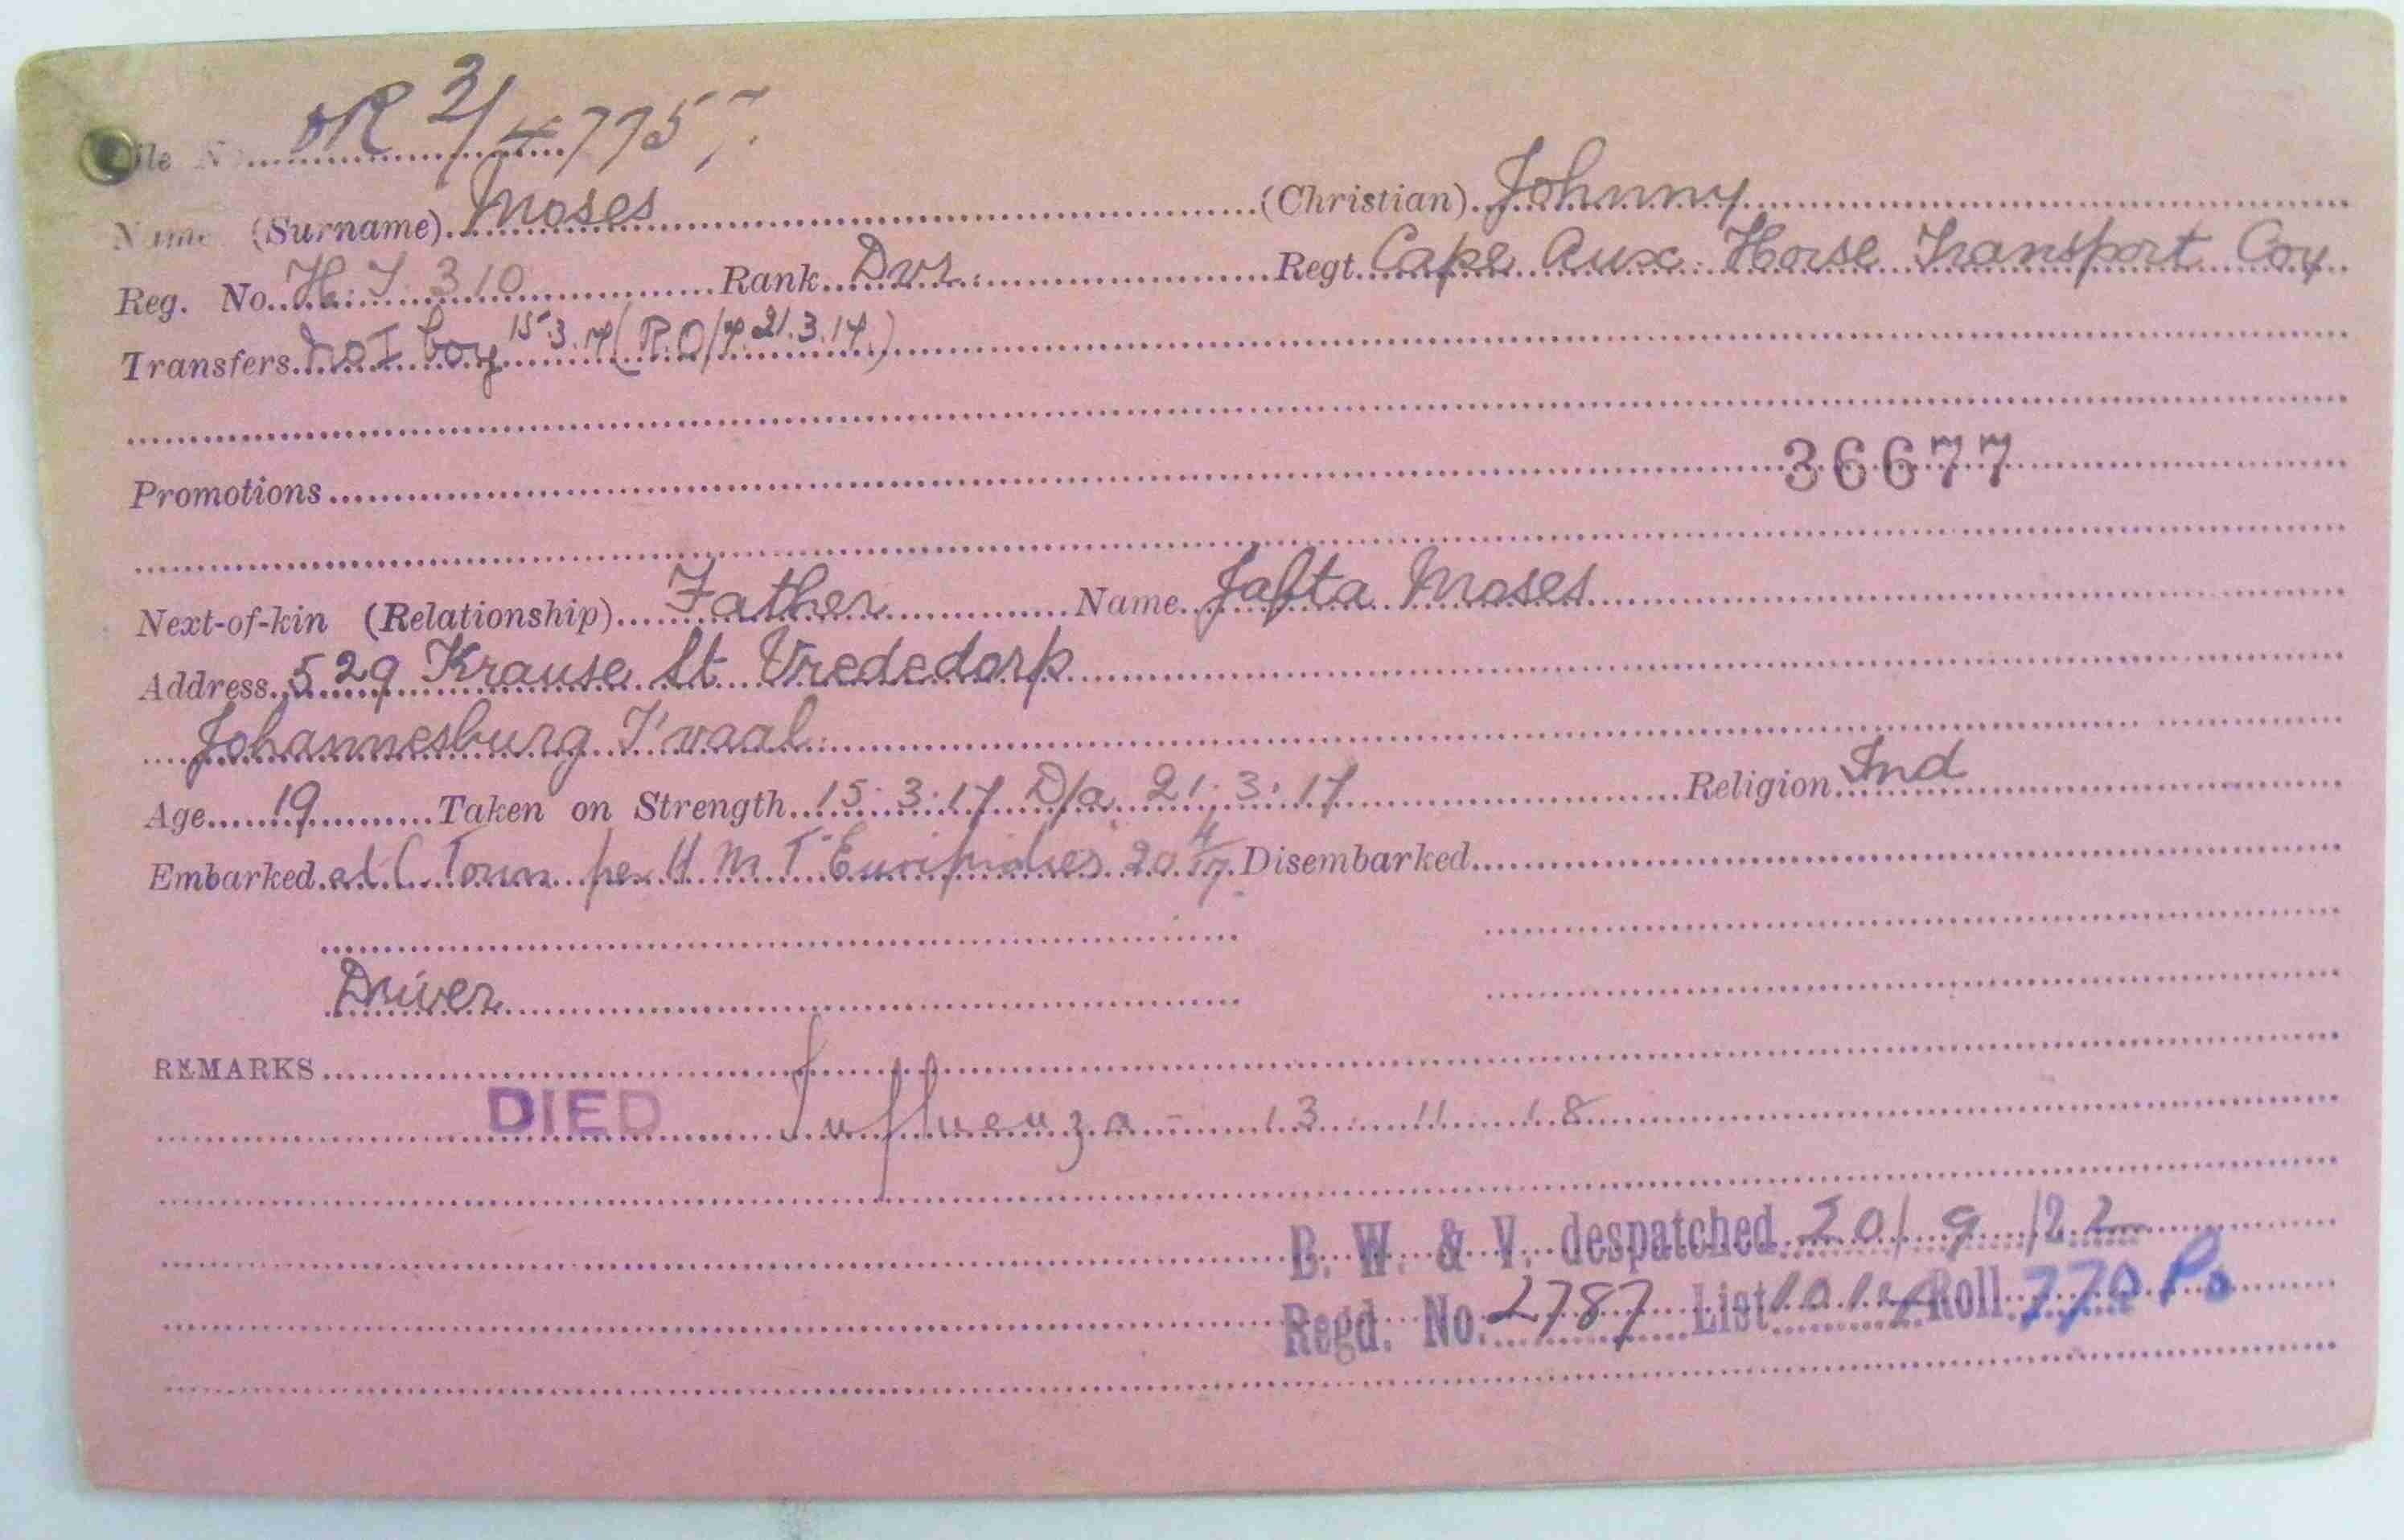 File No. OR 3/47757.
Name (Surname) Moses (Christian) Johnny
Reg. No. H.T. 310 Rank Dvr. Regt. Cape Aux. Horse Transport Coy
Transfers No I Coy 15.3.17 (R.O/7. 21.3.17.)
Promotions 36677
Next-of-kin (Relationship) Father Name Jafta Moses
Address 529 Krause St Vrededorp
Johannesburg T'vaal.
Age 19 Taken on Strength 15.3.17 D/a 21.3.17 Religion Ind
Embarked at C Town per H M T Euripides 20 4/17. Disembarked
Driver
REMARKS
DIED Influenza - 13 . 11 . 18
B. W. & V. despatched 20/ 9 /22
Regd. No. 2787 List Roll 770 Po